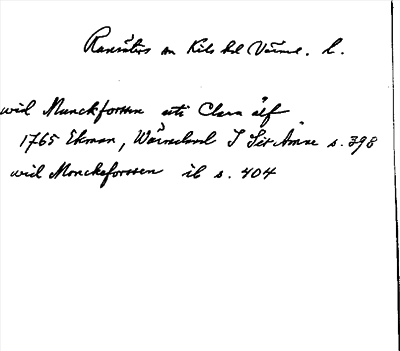 Ransäters sn Kils hd Värml. l.
wid Munckforssen uti Clara älf
1765 Ekman, Wärmeland I Sit Ämne s. 398
wid Monckeforssen ib s. 404